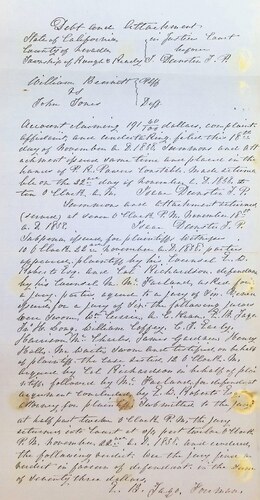 Debt and Attachment
State of California } in Justice Court
County of Nevada } before
Township of Rough & Ready } J. Dornster J. P.
William Bennett } Plff.
vs
John Jones } Deft.
Account claiming 191 dollars, complaint
affidavit, and undertaking filed this 18th
day of November A. D. 1858. Summons and att-
achment issued same time and placed in the
hands of P. R. Powers Constable. Made returna-
ble on the 22nd day of November A. D. 1858, at
ten o Clock A. M.
Summons and Attachment returned
(served) at seven o Clock P. M. November 18th
A. D. 1858.
Subpoena issued for plaintiffs witnesses
November A. D. 1858. parties
appeared, plaintiff by his Counsel E. W.
Roberts Esq. and Col Richardson, defendant
by his Counsel Mr. McFarland, asked for
a jury, parties agreed to a jury of
for a jury of Six. the following
were Sworn, E. W. Fago
Jas. H. Long, William Caffrey, C. F. Early,
Harrison, Mr. Charles James Graham, Henry
Hall, Mr. were sworn and testified in behalf
of plaintiff. The case rested, 12 o Clock M.
argued by Col Richardson in behalf of plain
tiff, followed by McFarland, for defendant
argument concluded by E. W. Roberts Esq.
Attorney for plaintiff. Submitted to the jury
at half past twelve o Clock P. M. the jury
returned into Court at half past twelve o Clock
P. M. November 22nd A. D. 1858, and rendered
the following verdict. We the jury find
verdict in favor of defendant in the sum
of seventy three dollars.
E. W. Fago, Foreman.